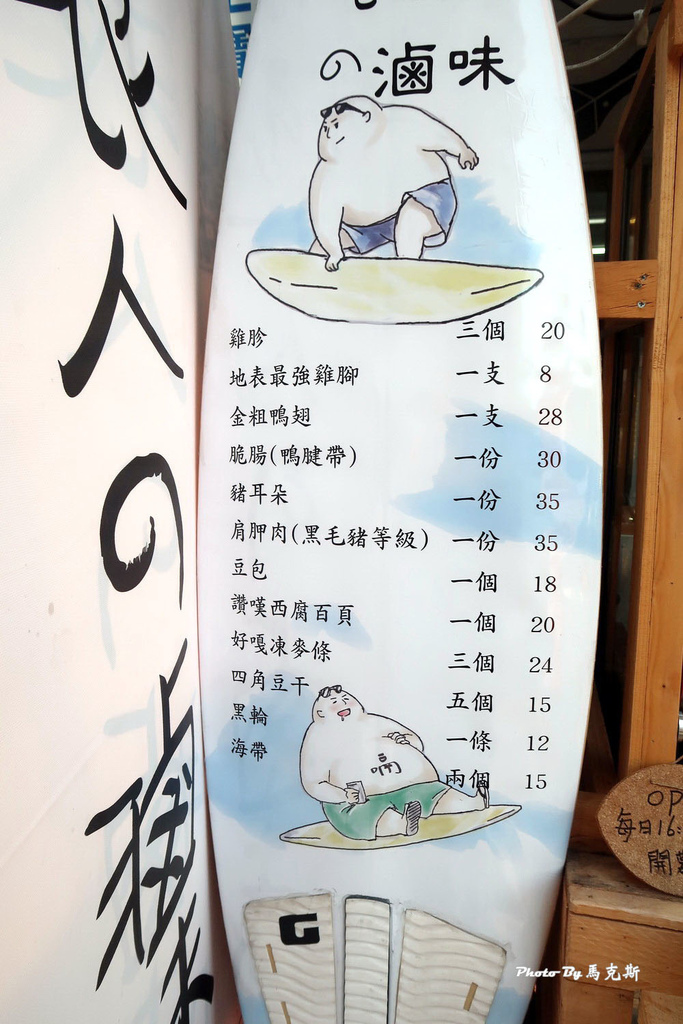 の滷味
雞胗 三個 20
地表最強雞腳 一支 8
金粗鴨翅 一支 28
脆腸(鴨腱帶) 一份 30
豬耳朵 一份 35
肩胛肉(黑毛豬等級) 一份 35
豆包 一個 18
讚嘆西腐百頁 一個 20
好嘎凍麥條 三個 24
四角豆干 五個 15
黑輪 一條 12
海帶 兩個 15
人の滷
G
每日16:
開
Photo By 馬克斯